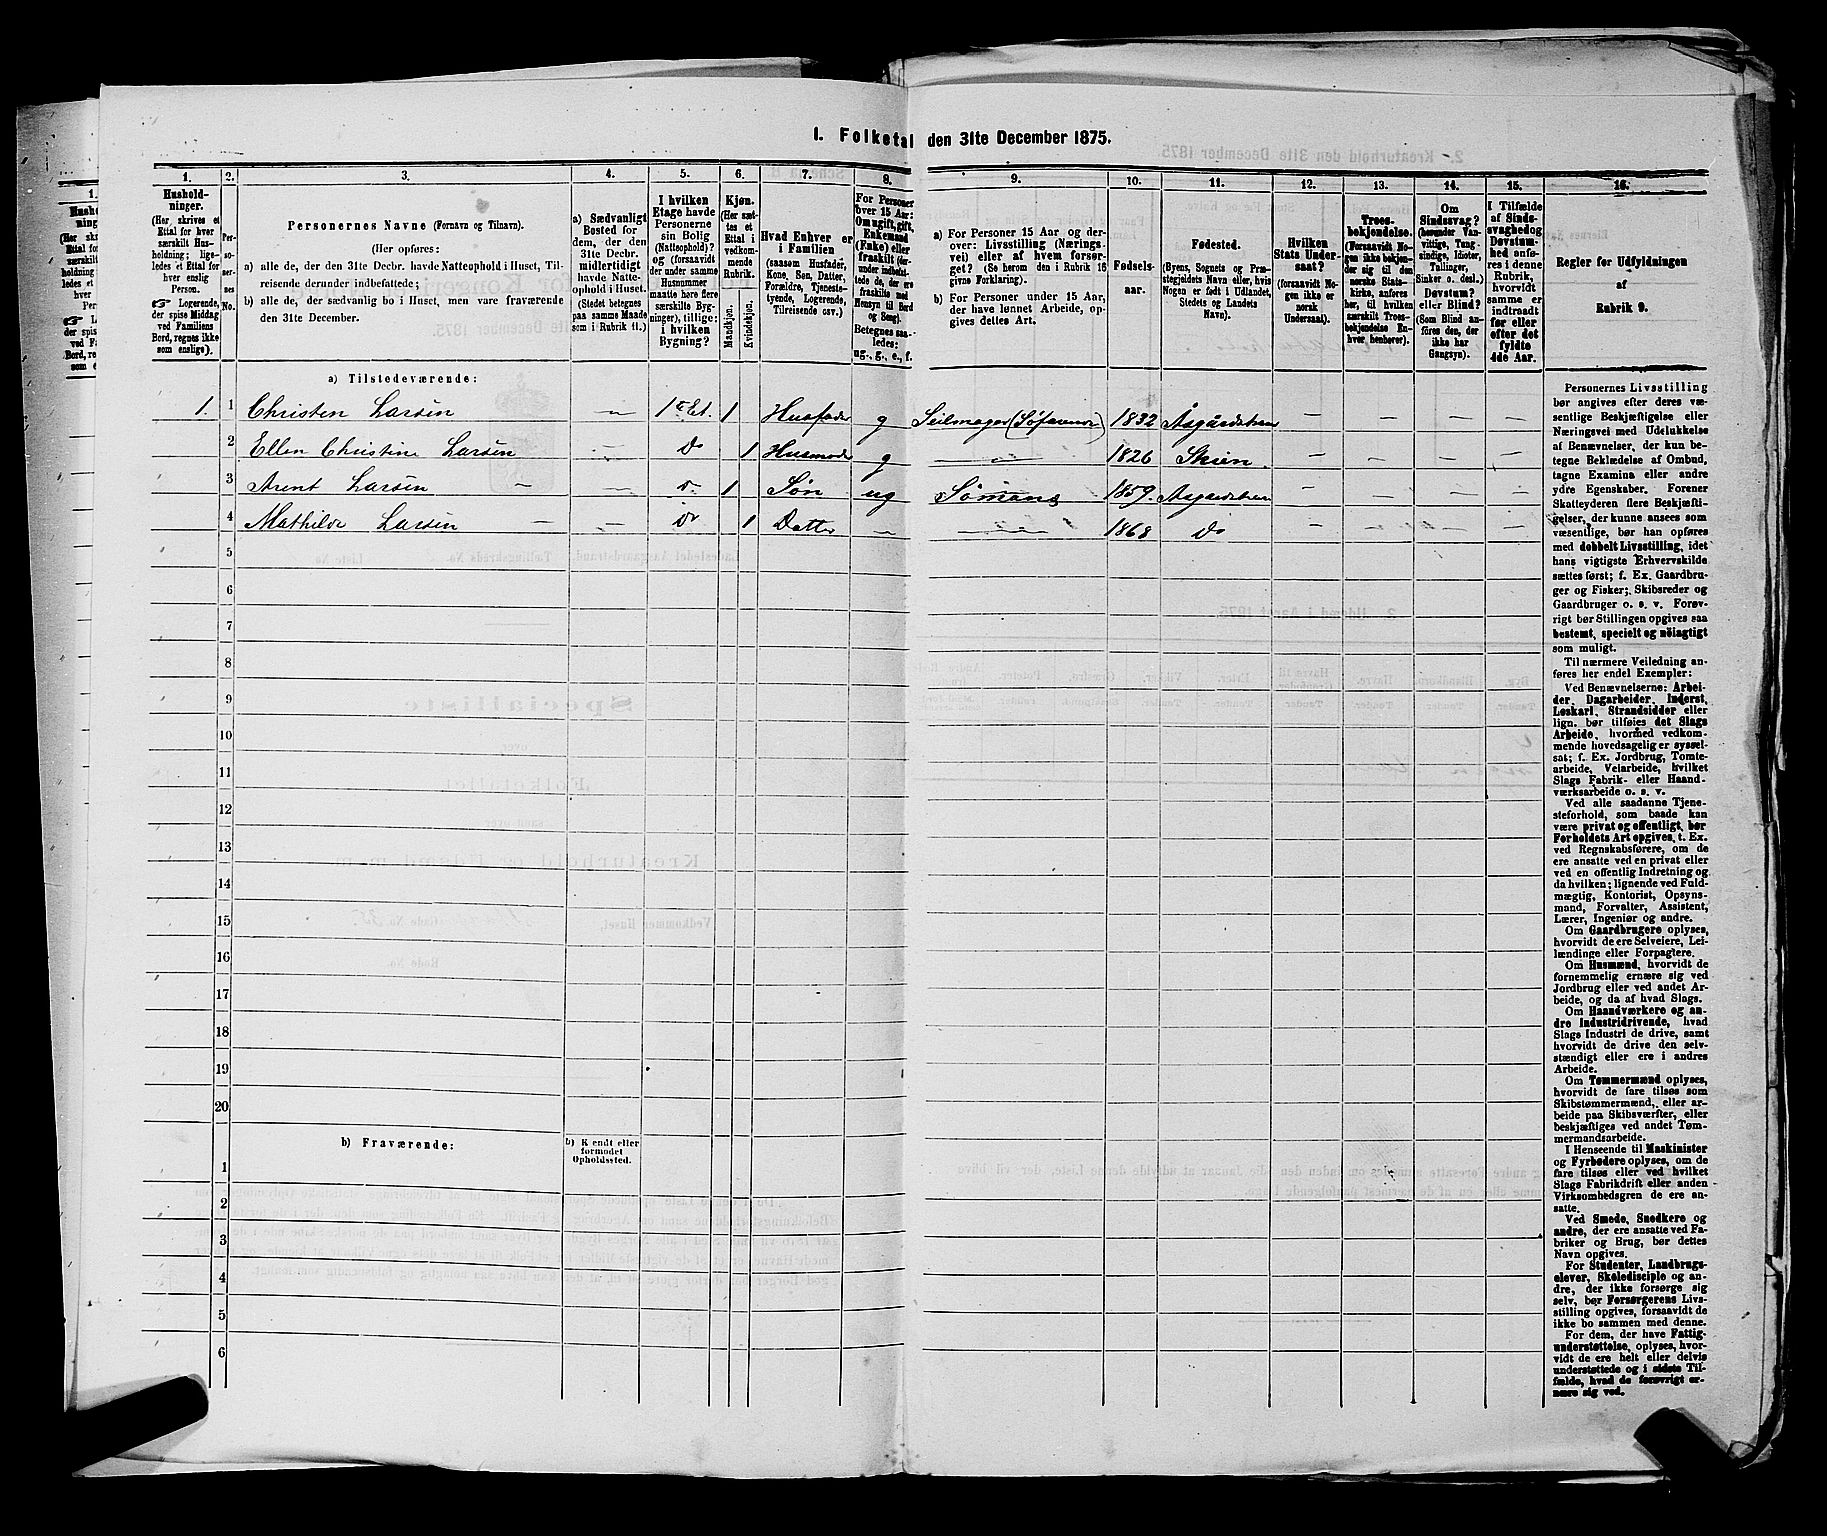 1. Folketal den 31te December 1875.
1. 2. 3. 4. 5. 6. 7. 8. 9. 10. 11. 12. 13. 14. 15. 16.
Hushold-
ninger.
(Her, skrives et
Ettal for hver
særskilt Hus-
holdning; lige-
ledes et Ettal for
enslig
Person.
☞ Logerende,
der spise Middag
ved Familiens
Bord, regnes ikke
som enslige).
Per-
so-
ner-
nes
No.
Personernes Navne (Fornavn og Tilnavn).
(Her opføres:
a) alle de, der den 31te Decbr. havde Natteophold i Huset, Til-
reisende derunder indbefattede;
b) alle de, der sædvanlig bo i Huset, men vare fraværende
den 31te December.
a) Sædvanligt
Bosted for
dem, der den
31te Decbr.
midlertidigt
havde Natte-
ophold i Huset.
(Stedet betegnes
paa samme Maade
som i Rubrik 11.)
I hvilken
Etage havde
Personerne
sin Bolig
(Natteophold)?
og (forsaavidt
der under samme
Husnummer
maatte høre flere
særskilte Byg-
ninger), tillige:
i hvilken
Bygning?
Kjøn.
(Her sæt-
tes et
Ettal i
vedkom-
mende
Rubrik.
Mandkjøn.
Kvindekjøn.
Hvad Enhver er
i Familien
(saasom Husfader,
Kone, Søn, Datter,
Forældre, Tjeneste-
tyende, Logerende,
Tilreisende osv.)
For Personer
over 15 Aar:
Om ugift, gift,
Enkemand
(Enke) eller
fraskilt (der-
under indbefat-
tede de, der ere
fraskilte med
Hensyn til Bord
og Seng).
Betegnes saa-
ledes:
ug., g., e., f.
a) For Personer 15 Aar og der-
over: Livsstilling (Nærings-
vei) eller af hvem forsør-
get? (Se herom den i Rubrik 16
givne Forklaring).
b) For Personer under 15 Aar,
der have lønnet Arbeide, op-
gives dettes Art.
Fødsels-
aar.
Fødested.
(Byens, Sognets og Præ-
stegjeldets Navn eller, hvis
Nogen er født i Udlandet,
Stedets og Landets
Navn).
Hvilken
Stats Under-
saat?
(forsaavidt No-
gen ikke er
norsk
Undersaat).
Troes-
bekjendelse.
(Forsaavidt No-
gen ikke bekjen-
der sig til den
norske Stats-
kirke, anføres
her, til hvilken
særskilt Troes-
bekjendelse En-
hver henhører).
Om
Sindssvag?
(herunder Van-
vittige, Tung-
sindige, Idioter,
Tullinger,
Sinker o. desl.)
Døvstum?
eller Blind?
(Som Blind an-
føres den, der
ikke har
Gangsyn).
I Tilfælde
af Sinds-
svaghed og
Døvstum-
hed anfø-
res i denne
Rubrik,
hvorvidt
samme er
indtraadt
før eller
efter det
fyldte
4de Aar.
Regler for Udfyldningen
af
Rubrik 9.
a) Tilstedeværende:
1. 1 Christen Larsen — 1ste Et. 1 Husfader g Seilmager (Søfarende) 1832 Åsgårdstran — — — —
2 Ellen Christine Larsen — Do 1 Husmoder g — 1826 Skien. — — — —
3 Arent Larsen — — Do 1 Søn ug Sømans 1859. Åsgårdstran — — — —
4 Mathilde Larsen — — Do 1 Datter — — 1868 Do — — — —
5
6
7
8
9
10
11
12
13
14
15
16
17
18
19
20
b) Fraværende:
b) Kjendt eller
formodet
Opholdssted.
1
2
3
4
5
6
Personernes Livsstilling
bør angives efter deres væ-
sentlige Beskjæftigelse eller
Næringsvei med Udelukkelse
af Benævnelser, der kun be-
tegne Beklædelse af Ombud,
tagne Examina eller andre
ydre Egenskaber. Forener
Skatteyderen flere Beskjæfti-
gelser, der kunne ansees som
væsentlige, bør han opføres
med dobbelt Livsstilling, idet
hans vigtigste Erhvervskilde
sættes først; f. Ex. Gaardbru-
ger og Fisker; Skibsreder og
Gaardbruger o. s. v. Forøv-
rigt bør Stillingen opgives saa
bestemt, specielt og nöiagtigt
som muligt.
Til nærmere Veiledning an-
føres her endel Exempler:
Ved Benævnelserne: Arbei-
der, Dagarbeider, Inderst,
Løskarl, Strandsidder eller
lign. bør tilføies det Slags
Arbeide, hvormed vedkom-
mende hovedsagelig er syssel-
sat; f. Ex. Jordbrug, Tomte-
arbeide, Veiarbeide, hvilket
Slags Fabrik- eller Haand-
værksarbeide o. s. v.
Ved alle saadanne Tjene-
steforhold, som baade kan
være privat og offentligt, bør
Forholdets Art opgives, t. Ex.
ved Regnskabsførere, om de
ere ansatte ved en privat eller
ved en offentlig Indretning og
da hvilken; lignende ved Fuld-
mægtig, Kontorist, Opsyns-
mand, Forvalter, Assistent,
Lærer, Ingeniør og andre.
Om Gaardbrugere oplyses,
hvorvidt de ere Selveiere, Lei-
lændinge eller Forpagtere.
Om Husmænd, hvorvidt de
fornemmelig ernære sig ved
Jordbrug eller ved andet Ar-
beide, og da af hvad Slags.
Om Haandværkere og an-
dre Industridrivende, hvad
Slags Industri de drive, samt
hvorvidt de drive den selv-
stændigt eller ere i andres
Arbeide.
Om Tømmermænd oplyses,
hvorvidt de fare tilsøs som
Skibstømmermænd, eller ar-
beide paa Skibsværfter, eller
beskjæftiges ved andet Tøm-
mermandsarbeide.
I Henseende til Maskinister
og Fyrbødere oplyses, om de
fare tilsøs eller ved hvilket
Slags Fabrikdrift eller anden
Virksomhedsgren de ere an-
satte.
Ved Smede, Snedkere og
andre, der ere ansatte ved Fa-
briker og Brug, bør dettes
Navn opgives.
For Studenter, Landbrugs-
elever, Skoledisciple og an-
dre, der ikke forsørge sig
selv, bør Forsørgerens Livs-
stilling opgives, forsaavidt de
ikke bo sammen med denne.
For dem, der have Fattig-
understøttelse, oplyses, hvor-
vidt de ere helt eller delvis
understøttede og i sidste Til-
fælde, hvad de forøvrigt er-
nære sig ved.